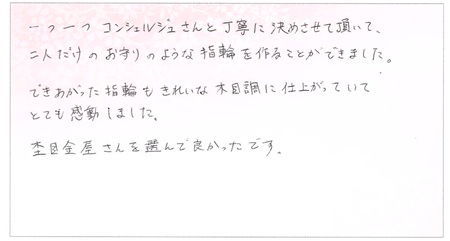 一つ一つ コンシェルジュさんと丁寧に決めさせて頂いて、
二人だけのお守りのような指輪を作ることができました。
できあがった指輪もきれいな木目調に仕上がっていて
とても感動しました。
杢目金屋さんを選んで良かったです。